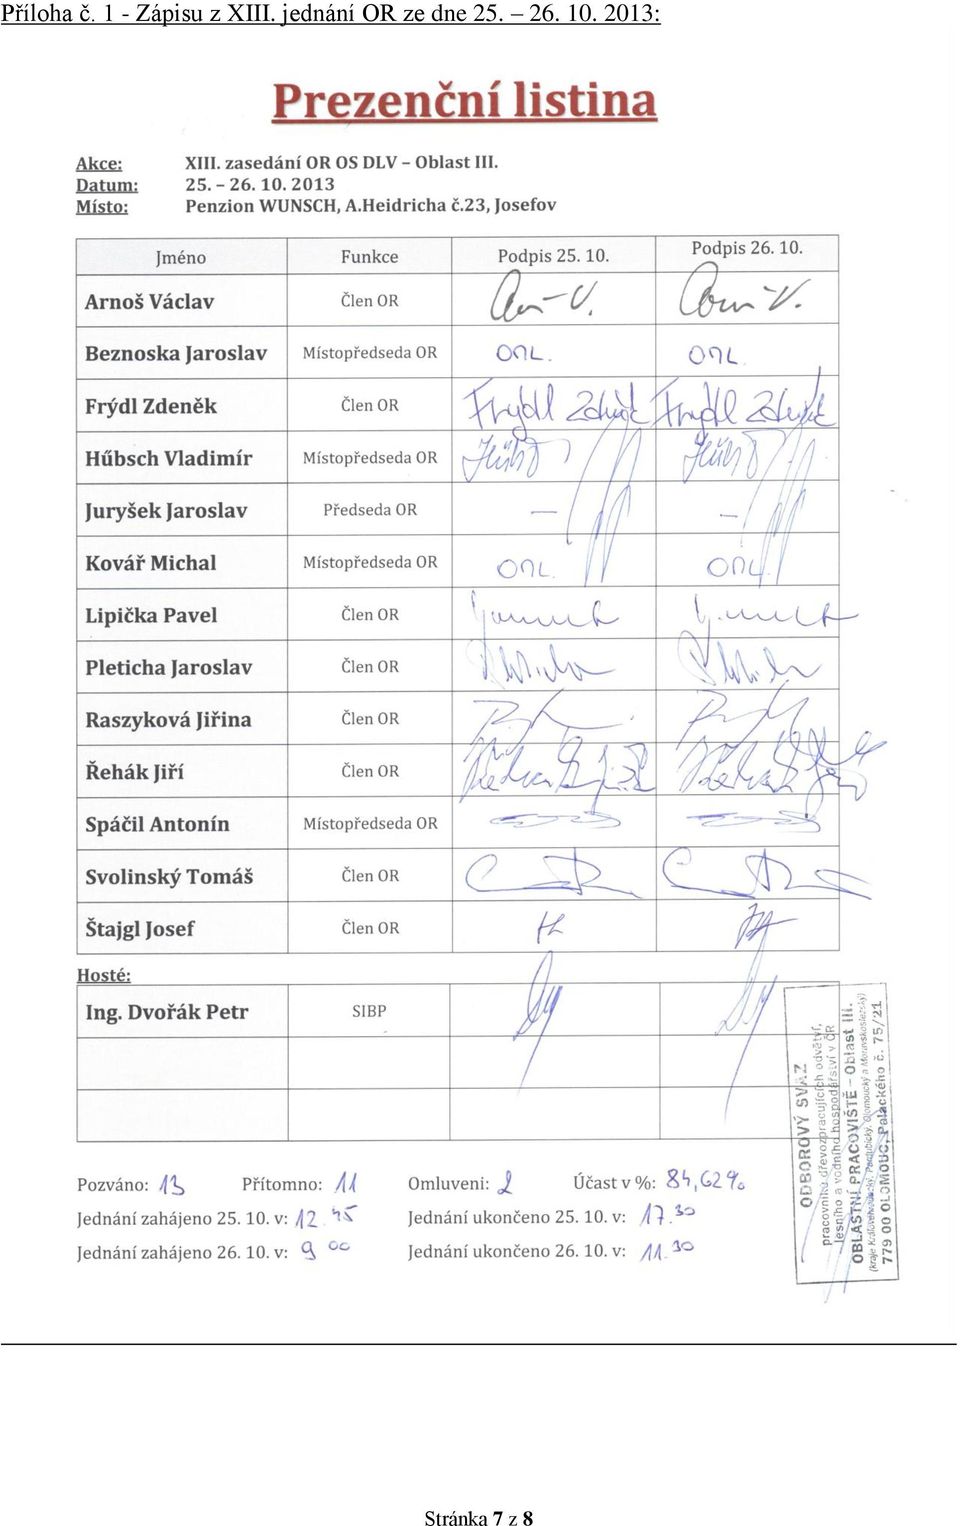 Příloha č. 1 - Zápisu z XIII. jednání OR ze dne 25. – 26. 10. 2013:
Prezenční listina
Akce: XIII. zasedání OR OS DLV – Oblast III.
Datum: 25. – 26. 10. 2013
Místo: Penzion WUNSCH, A.Heidricha č.23, Josefov
Jméno Funkce Podpis 25. 10. Podpis 26. 10.
Arnoš Václav Člen OR
Beznoska Jaroslav Místopředseda OR OML. OML.
Frýdl Zdeněk Člen OR Frýdl Zdeněk Frýdl Zdeněk
Hűbsch Vladimír Místopředseda OR
Juryšek Jaroslav Předseda OR – –
Kovář Michal Místopředseda OR OML. OML.
Lipička Pavel Člen OR
Pleticha Jaroslav Člen OR
Raszyková Jiřina Člen OR
Řehák Jiří Člen OR
Spáčil Antonín Místopředseda OR
Svolinský Tomáš Člen OR
Štajgl Josef Člen OR
Hosté:
Ing. Dvořák Petr SIBP
Pozváno: 13 Přítomno: 11 Omluveni: 2 Účast v %: 84,62%
Jednání zahájeno 25. 10. v: 12.45 Jednání ukončeno 25. 10. v: 17.30
Jednání zahájeno 26. 10. v: 9 00 Jednání ukončeno 26. 10. v: 11.30
ODBOROVÝ SVAZ
pracovníků dřevozpracujících odvětví,
lesního a vodního hospodářství v ČR
OBLASTNÍ PRACOVIŠTĚ – Oblast III.
(kraje Královéhradecký, Pardubický, Olomoucký a Moravskoslezský)
779 00 OLOMOUC, Palackého č. 75/21
Stránka 7 z 8